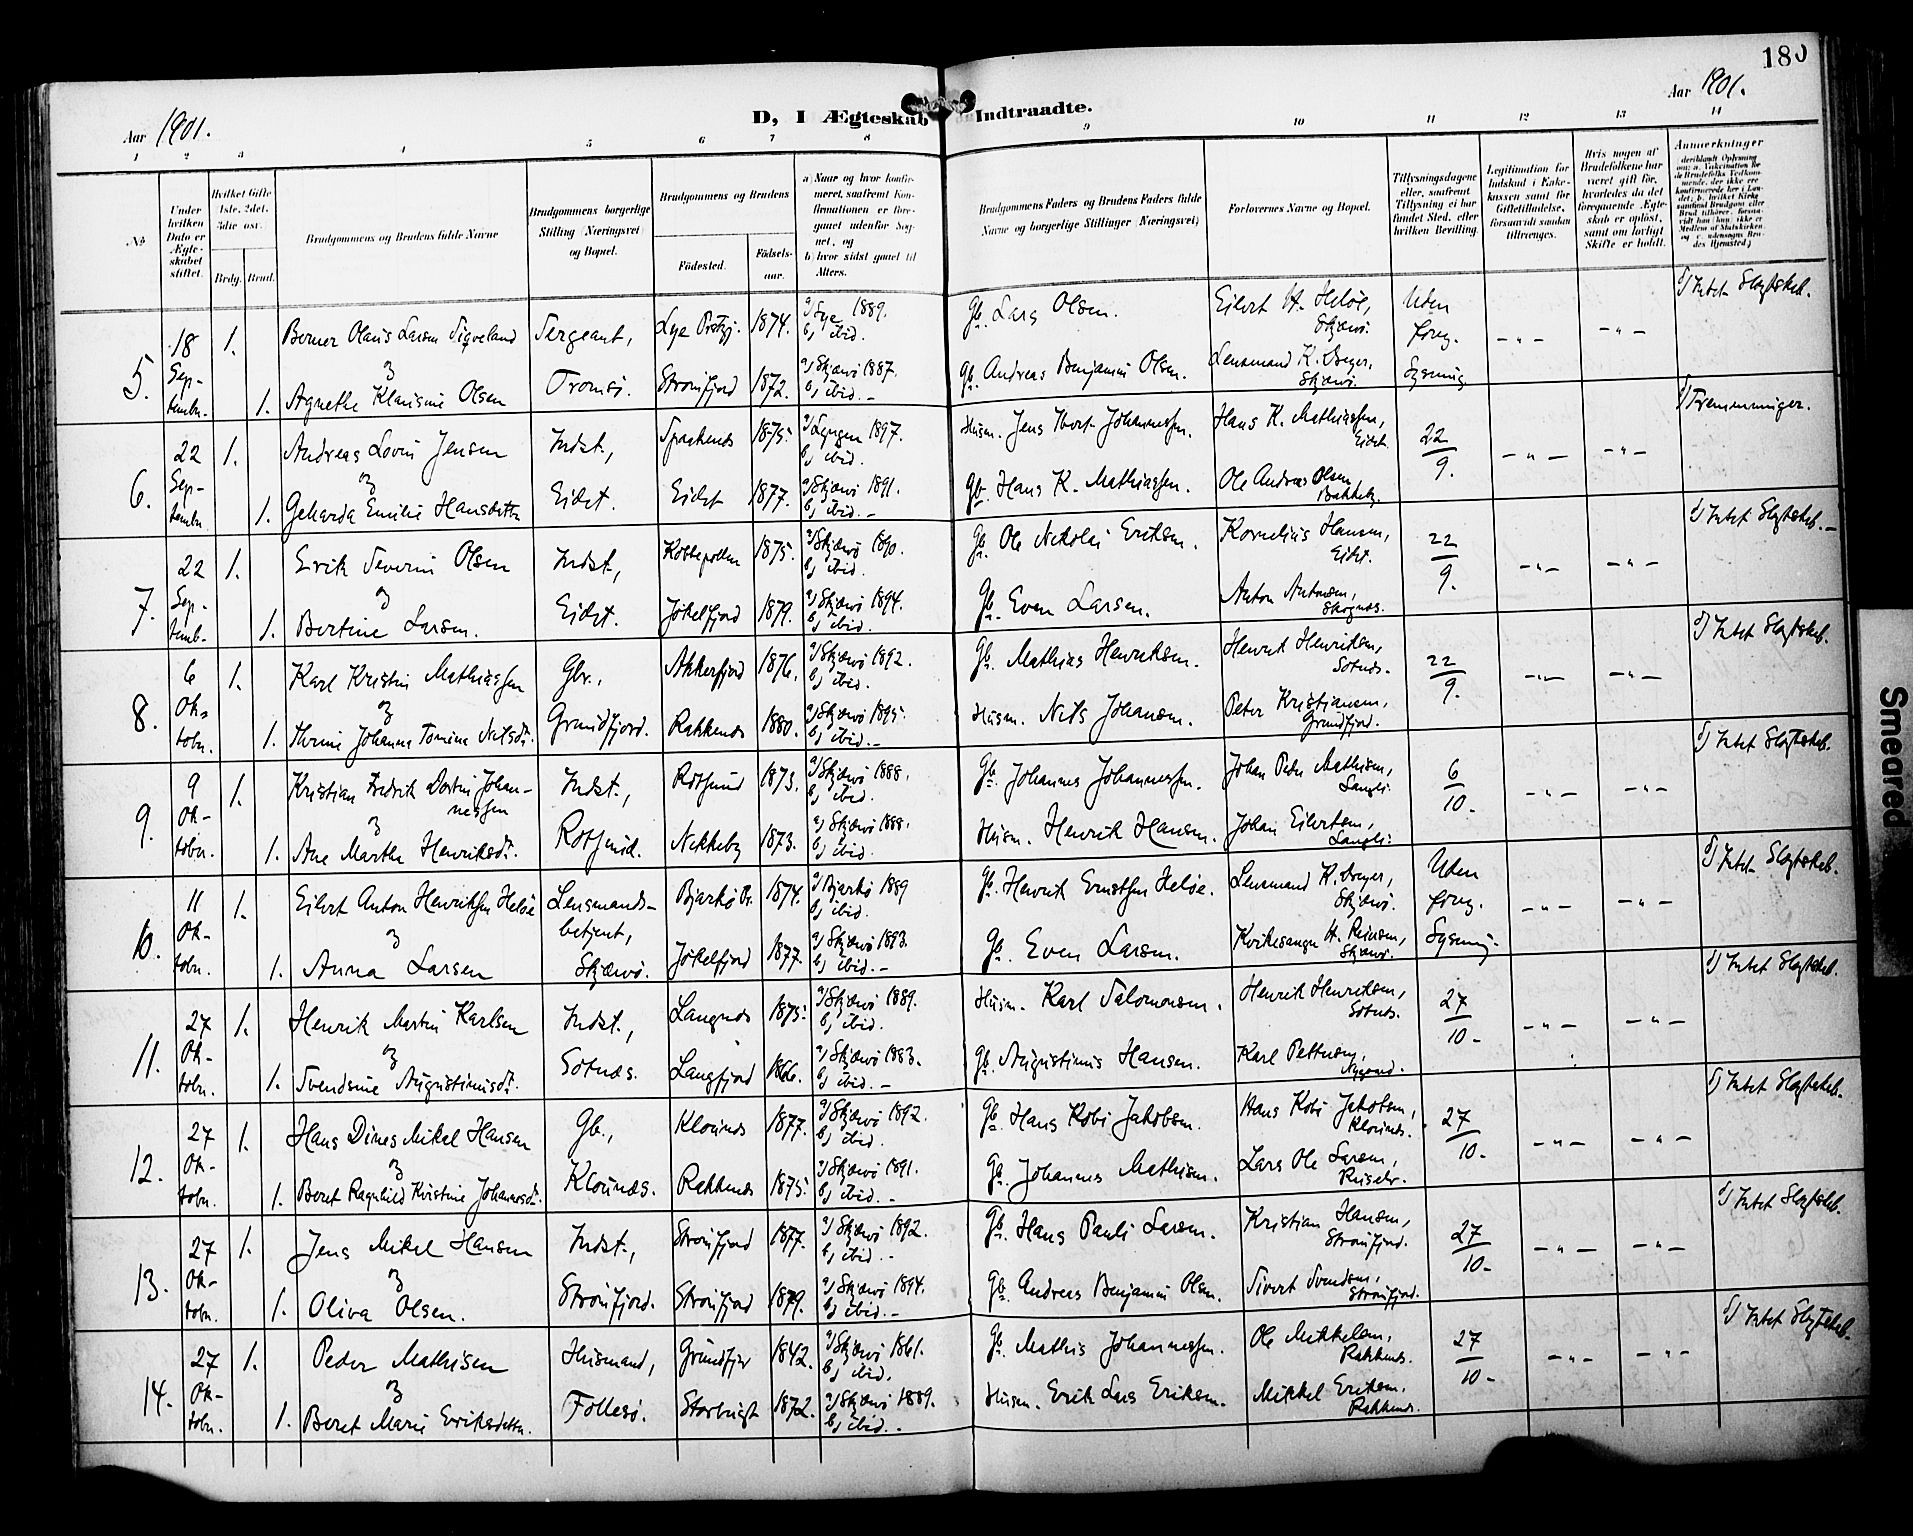 180
Aar 1901.
D, I Ægteskab Indtraadte.
Aar 1901.
1 2 3 4 5 6 7 8 9 10 11 12 13 14
No.
Under hvilken Dato er Ægteskabet stiftet.
Hvilket Gifte 1ste, 2det, 3die osv.
Brdg. Brud.
Brudgommens og Brudens fulde Navne
Brudgommens borgerlige Stilling (Næringsvei) og Bopæl.
Brudgommens og Brudens
Fødested.
Fødsels-aar.
a) Naar og hvor konfirmeret, saafremt Konfirmationen er foregaaet udenfor Sognet, og
b) hvor sidst gaaet til Alters.
Brudgommens Faders og Brudens Faders fulde Navne og borgerlige Stillinger (Næringsvei)
Forlovernes Navne og Bopæl.
Tillysningsdagene eller, saafremt Tillysning ei har fundet Sted, efter hvilken Bevilling.
Legitimation for Indskud i Enkekassen samt for Giftetilladelse, forsaavidt saadan tiltrænges.
Hvis nogen af Brudefolkene har været gift før, hvorledes da det foregaaende Ægteskab er opløst, samt om lovligt Skifte er holdt.
Anmerkninger
5. 18 September. 1. Berner Olaus Larsen Sigveland Sergeant, Lye Prstgj. 1874. a) Lye 1889. b) ibid. Gb. Lars Olsen. Eilert H. Heløe, Skjærvø. Uden foreg. Lysning - " - - " - Intet Slegtskab.
& 1. Agnethe Klausine Olsen Tromsø. Straumfjord 1872. a) Skjærvø 1887. b) ibid. - Gb. Andreas Benjamin Olsen. Lensmand K. Dreyer, Skjærvø.
6. 22 September. 1. Andreas Lovin Jensen Indst., Spaakenes 1875. a) Lyngen 1897. b) ibid. Husm. Jens Johannessen. Hans K. Mathiassen, Eidet. 22/9. - " - - " - Fremmninger.
& 1. Geharda Emilie Hansdatter Eidet. Eidet 1877. a) Skjærvø 1891. b) ibid. - Gb. Hans K. Mathiassen. Ole Andreas Olsen, Bakkeby.
7. 22 Septemb. 1. Erik Severin Olsen Indst., 1875. a) Skjærvø 1890. b) ibid. Gb. Ole Nikolai Eriksen. Kornelius Hansen, Eidet. 22/9. - " - - " - Intet Slegtskab. -
& 1. Bertine Larsen. Eidet. Jøkelfjord 1879. a) Skjærvø 1894. b) ibid. Gb. Even Larsen. Anton Antonsen, Skognæs.
8. 6 Oktober. 1. Karl Kristin Mathiassen Gbr., Akkerfjord 1876. a) Skjærvø 1892. b) ibid. Gb. Mathias Henriksen. Henrik Henriksen, Sotnæs. 22/9. - " - - " - Intet Slegtskab.
& 1. Johanna Tomine Nilsdtr. Grundfjord. Rakkenes 1880. a) Skjærvø 1895. b) ibid. - Husm. Nils Johansen. Peter Kristiansen, Grundfjord.
9. 9 Oktober. 1. Kristian Fredrik Dortin Johannessen Indst., Rotsund 1873. a) Skjærvø 1888. b) ibid. Gb. Johannes Johannessen. Johan Peder Mathisen, Langli. 6/10. - " - - " - Intet Slegtskab.
& 1. Ane Marthe Henriksdtr. Rotsund. Nikkeby 1873. a) Skjærvø 1888. b) ibid. Husm. Henrik Hansen. Johan Eilertsen, Langli.
10. 11 Oktober. 1. Eilert Anton Henriksen Heløe Lensmandsbetjent, Bjarkø Pr. 1874. a) Bjarkø 1889 b) ibid. Gb. Henrik Ernstsen Heløe. Lensmand K. Dreyer, Skjærvø. Uden foreg. Lysning. - " - - " - Intet Slegtskab.
& 1. Anna Larsen Skjærvø. Jøkelfjord 1877. a) Skjærvø 1893. b) ibid. - Gb. Even Larsen. Kirkesanger H. Reiersen, Skjærvø.
11. 27 Oktober. 1. Henrik Martin Karlsen Indst., Langnes 1875. a) Skjærvø 1889. b) ibid. Husm. Karl Salomonsen. Henrik Henriksen, Sotnæs. 27/10 - - " - - " - Intet Slegtskab.
& 1. Svendsine Augustinusdtr. Sotnæs. Langfjord 1866. a) Skjærvø 1883. b) ibid. - Gb. Augustinus Hansen. Karl Pettersen,
12. 27 Oktober. 1. Hans Dines Mikel Hansen Gb., Klounes 1877. a) Skjærvø 1892. b) ibid. Gb. Hans Kobi Jakobsen. Hans Kobi Jakobsen, Klounes. 27/10. - " - - " - Intet Slegtskab.
& 1. Beret Ragnhild Kristine Johannesdtr. Klounæs. Rakkenæs 1875. a) Skjærvø 1891. b) ibid. - Gb. Johannes Mathisen. Lars Ole Larsen,
13. 27 Oktober. 1. Jens Mikel Hansen Indst., Straumfjord 1877. a) Skjærvø 1892. b) ibid. - Gb. Hans Pauli Larsen. Kristian Hansen, Straumfjord. 27/10 - - " - - " - Intet Slegtskab.
& 1. Oliva Olsen. Straumfjord. Straumfjord 1879. a) Skjærvø 1894. b) ibid. - Gb. Andreas Benjamin Olsen. Sivert Svendsen, Straumfjord.
14. 27 Oktober. 1. Peder Mathisen Husmand, Grundfjor 1842. a) Skjærvø 1861. b) ibid. Gb. Mathis Johannessen. Ole Mikkelsen, Rakkenes. 27/10 - - " - - " - Intet Slegtskab.
& 1. Beret Marie Eriksdatter. Follesø. Storbugt 1872. a) Skjærvø 1889. b) ibid. - Husm. Erik Lars Eriksen. Mikkel Eriksen, Rakkenes.
Smeared